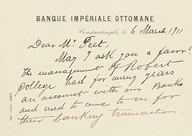 BANQUE IMPÉRIALE OTTOMANE
Constantinople, le 6 March 1911
Dear Mr. Feet,
May I ask you a favor?
The management of Robert
College had for many years
an account with our Bank
and used to come to us for
their banking transaction.